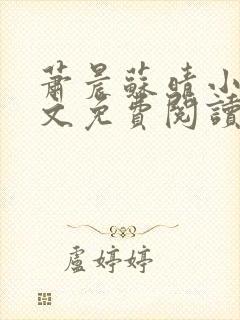 蕭晨蘇晴小
文免費閱讀
盧婷婷